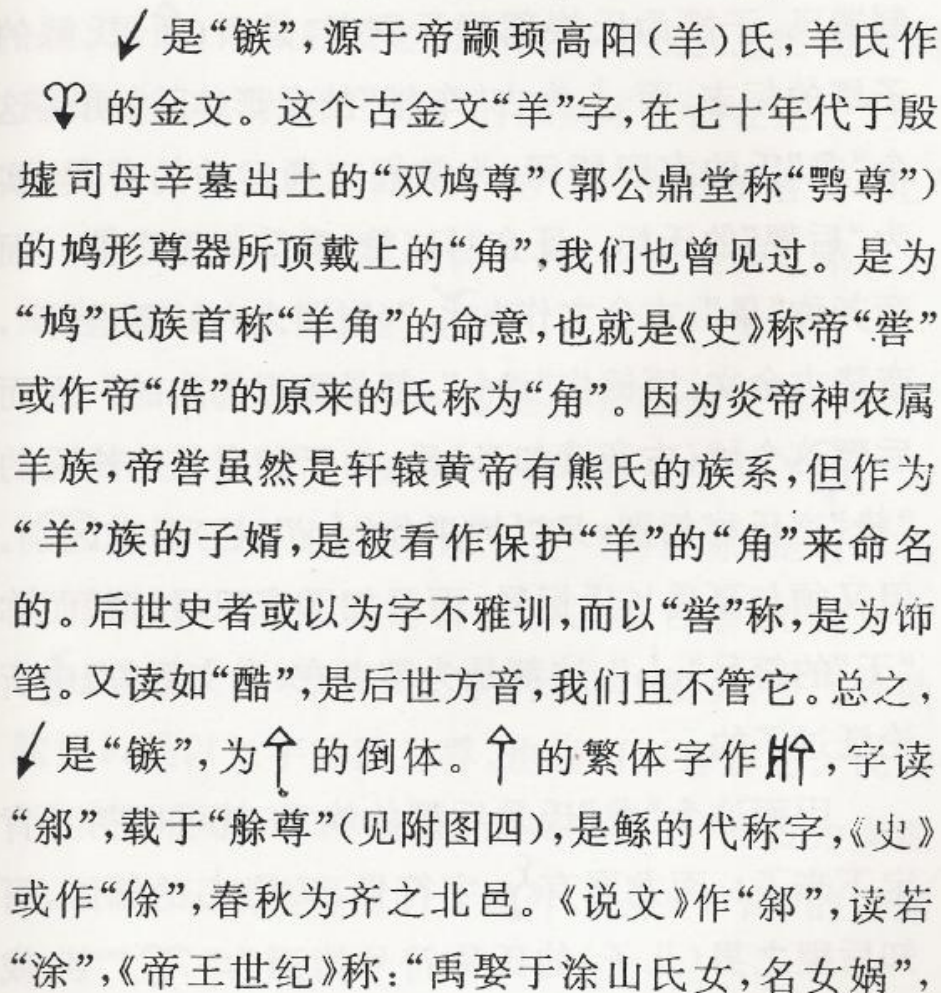 是“镞”,源于帝颛顼高阳(羊)氏,羊氏作
的金文。这个古金文“羊”字,在七十年代于殷
墟司母辛墓出土的“双鸠尊”(郭公鼎堂称“鹗尊”)
的鸠形尊器所顶戴上的“角”,我们也曾见过。是为
“鸠”氏族首称“羊角”的命意,也就是《史》称帝“喾”
或作帝“俈”的原来的氏称为“角”。因为炎帝神农属
羊族,帝喾虽然是轩辕黄帝有熊氏的族系,但作为
“羊”族的子婿,是被看作保护“羊”的“角”来命名
的。后世史者或以为字不雅训,而以“喾”称,是为饰
笔。又读如“酷”,是后世方音,我们且不管它。总之,
是“镞”,为 的倒体。 的繁体字作 ,字读
“䣄”,载于“艅尊”(见附图四),是鲧的代称字,《史》
或作“俆”,春秋为齐之北邑。《说文》作“䣄”,读若
“涂”,《帝王世纪》称:“禹娶于涂山氏女,名女娲”,